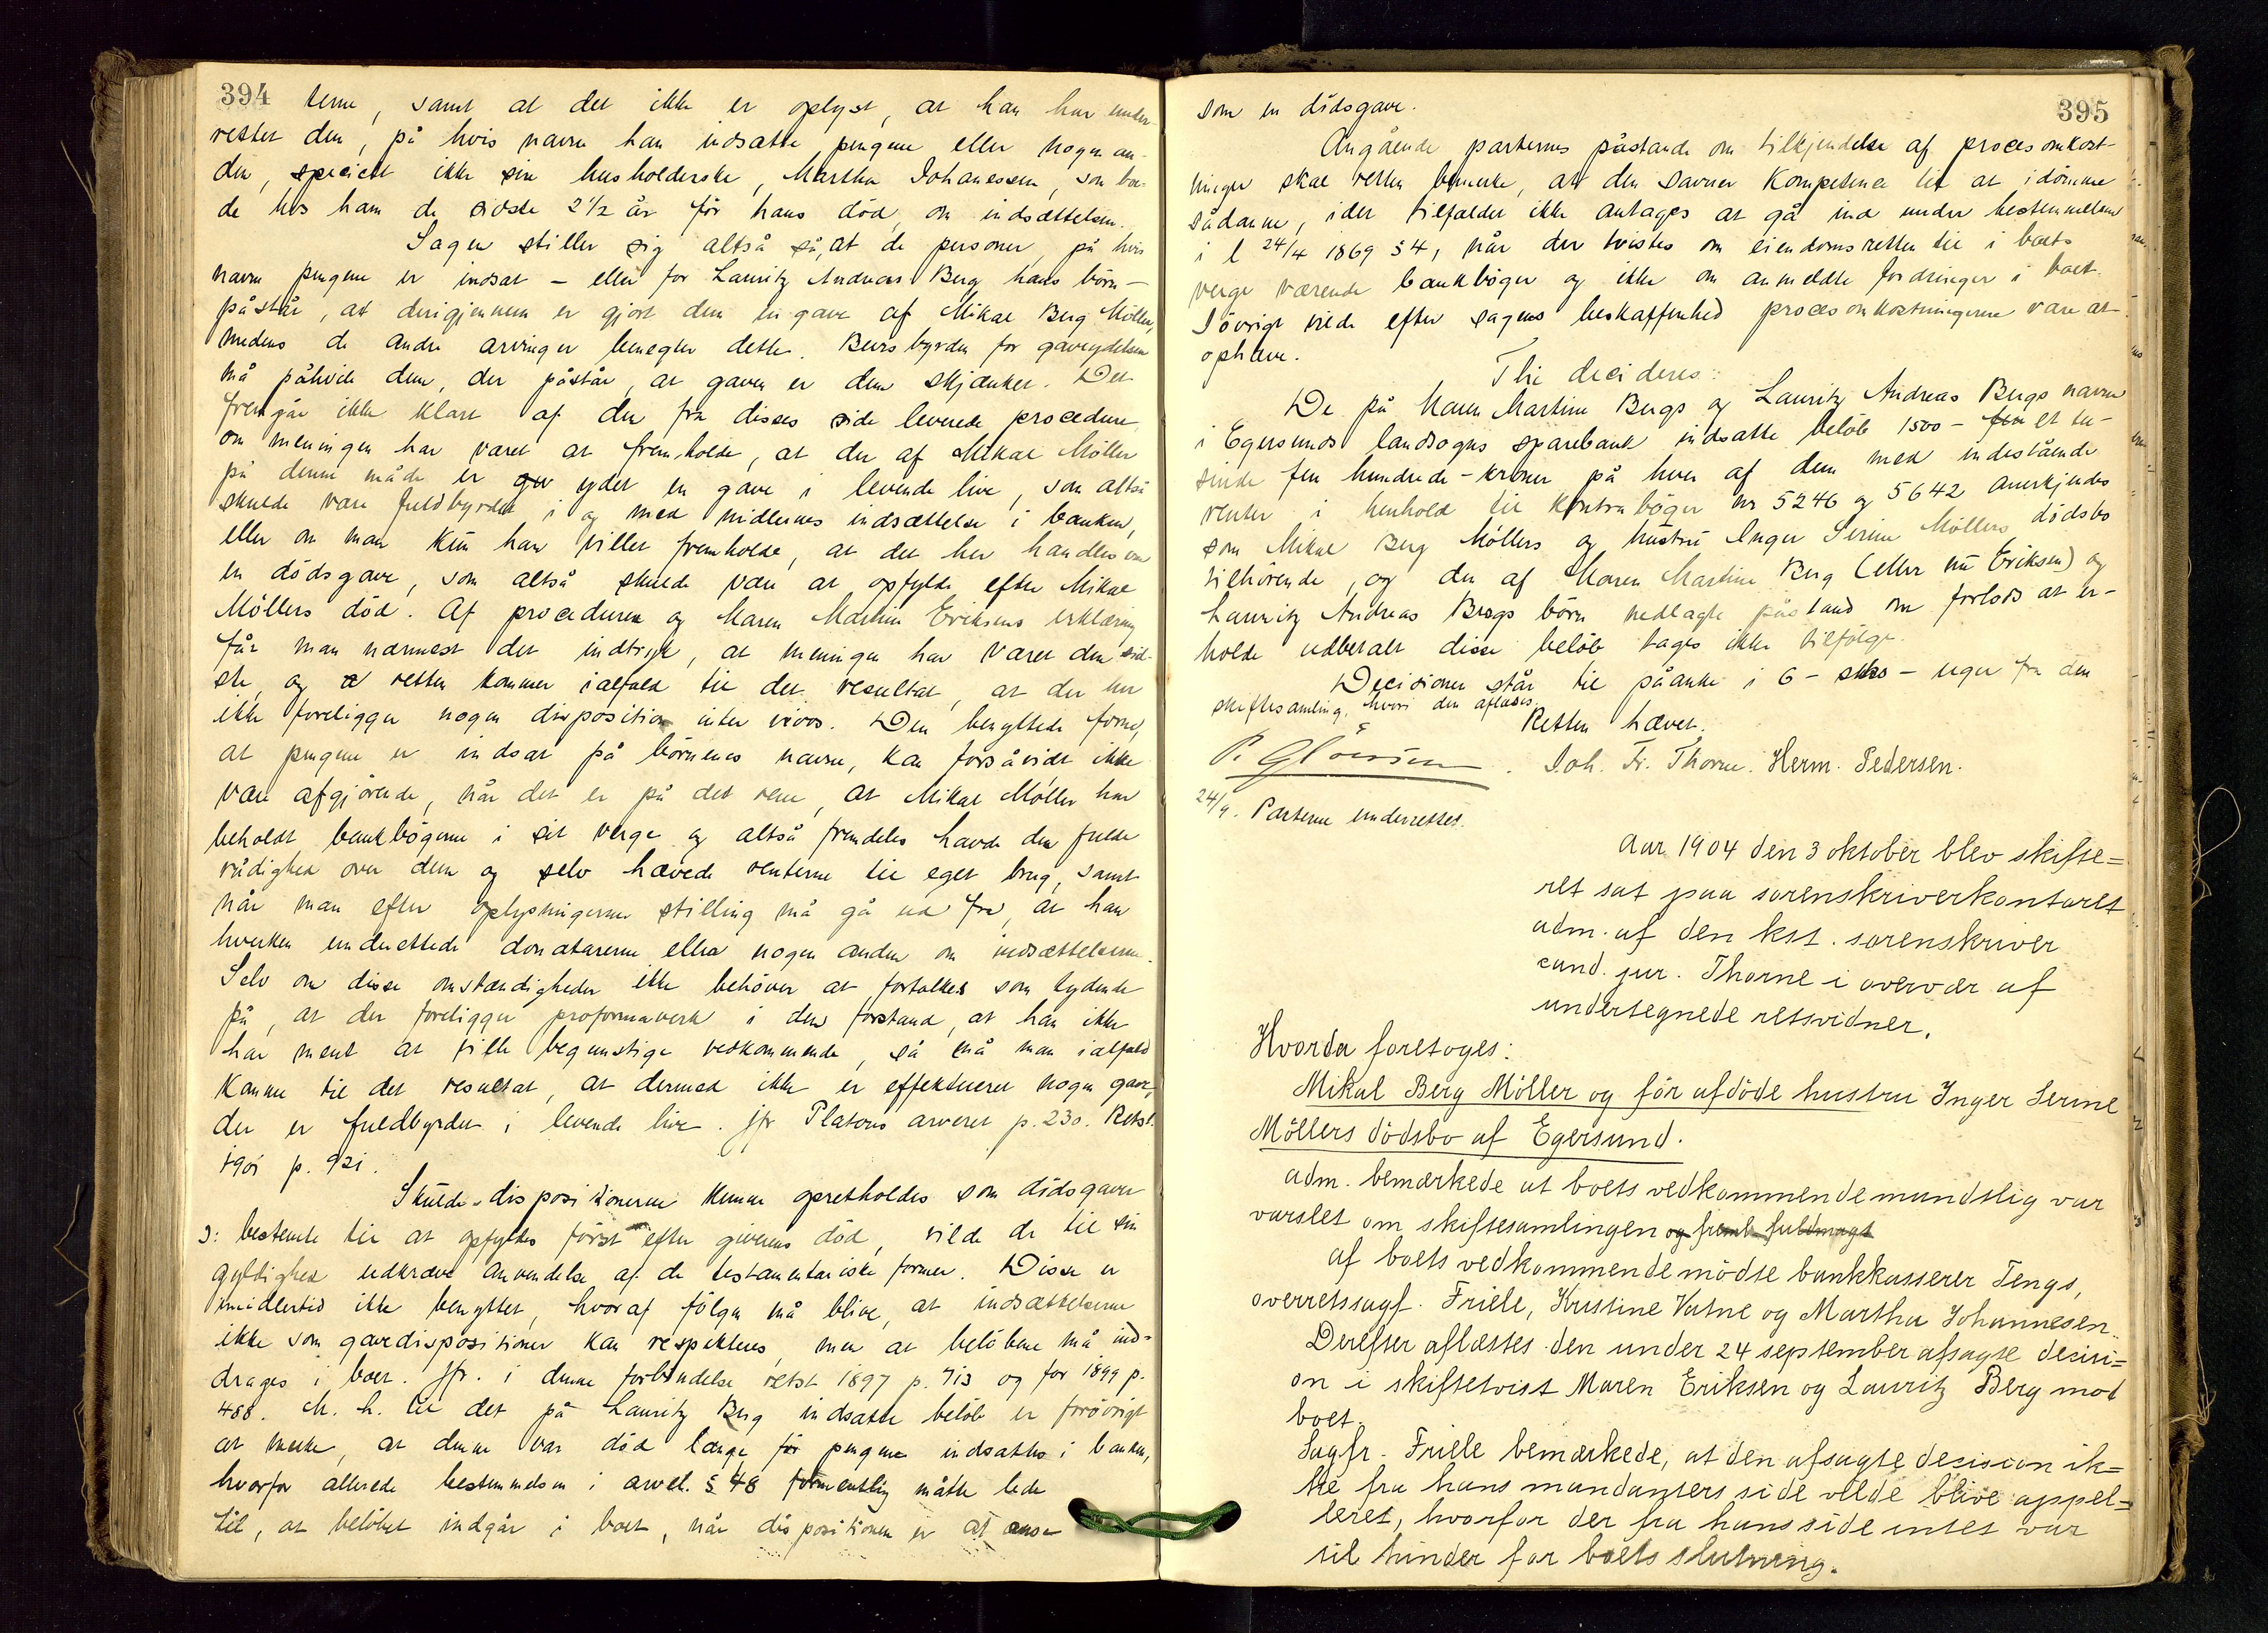 394
terne, samt at det ikke er oplyst, at han har under-
rettet den, på hvis navn han indsatte pengene eller nogen an-
den, specielt ikke sin husholderske, Martha Johanessen, som bo-
de hos ham de sidste 2 1/2 år før hans död, om indsættelsen.
Sagen stiller sig altså så, at de personer, på hvis
navn pengene er indsat – eller for Lauritz Andreas Berg hans börn –
påstår, at derigjennem er gjort dem en gave af Mikal Berg Möller,
medens de andre arvinger benegter dette. Bevisbyrden for gaveydelsen
må påhvile dem, der påstår, at gaven er dem skjænket. Det
fremgår ikke klart af den fra disses side leverede procedure,
om meningen har været at fremholde, at der af Mikal Möller
på denne måde er ydet en gave i levende live, som altså
skulde være fuldbyrdet i og med midlernes indsættelse i banken,
eller om man kun har villet fremholde, at det her handles om
en dödsgave, som altså skulde være at opfylde efter Mikal
Möllers död. Af proceduren og Maren Martine Eriksens erklæring
får man nærmest det indtryk, at meningen har været den sid-
ste, og retten kommer ialfald til det resultat, at der her
ikke foreligger nogen disposition inter vivos. Den benyttede form,
at pengene er indsat på börnenes navn, kan forsåvidt ikke
være afgjörende, når det er på det rene, at Mikal Möller har
beholdt bankbögerne i sit verge og altså fremdeles havde den fulde
rådighed over dem og selv hævede renterne til eget brug, samt
når man efter oplysningernes stilling må gå ud fra, at han
hverken underrettede donatarerne eller nogen anden om indsættelserne.
Selv om disse omstændigheder ikke behöver at fortolkes som tydende
på, at der foreligger proformaverk i den forstand, at han ikke
har ment at ville begunstige vedkommende, så må man ialfald
komme til det resultat, at dermed ikke er effektueret nogen gave,
der er fuldbyrdet i levende live. Jfr Platous arveret p. 230. Retst.
1901 p. 921.
Skulde dispositionerne kunne opretholdes som dödsgaver
ɔ: bestemte til at opfyldes först efter giverens död, vilde de til sin
gyldighed udkræve anvendelse af de testamentariske former. Disse er
imidlertid ikke benyttet, hvoraf fölgen må blive, at indsættelserne
ikke som gavedispositioner kan respekteres, men at belöbene må ind-
drages i boet. Jfr. i denne forbindelse retst 1897 p. 713 og for 1899 p.
488. M. h. til det på Lauritz Berg indsatte belöb er forövrigt
at merke, at denne var död længe för pengene indsattes i banken,
hvorfor allerede bestemmelsen i arvel. § 48 formentlig måtte lede
til, at belöbet indgår i boet, når dispositionen er at anse
395
som en dödsgave.
Angående parternes påstande om tilkjendelse af procesomkost-
ninger skal retten bemerke, at den savner kompetence til at idömme
sådanne, idet tilfældet ikke antages at gå ind under bestemmelsen
i l 24/4 1869 § 4, når der tvistes om eiendomsretten til i boets
verge værende bankböger og ikke om anmeldte fordringer i boet.
Iövrigt vilde efter sagens beskaffenhed procesomkostningerne være at
ophæve.
Thi decideres:
De på Maren Martine Bergs og Lauritz Andreas Bergs navne
i Egersunds landsogns sparebank indsatte belöb 1500 – et tu-
sinde fem hundrede – kroner på hver af dem med indestående
renter i henhold til kontraböger nr 5246 og 5642 anerkjendes
som Mikal Berg Möllers og hustru Inger Serine Möllers dödsbo
tilhörende, og den af Maren Martine Berg (eller nu Eriksen) og
Lauritz Andreas Bergs börn nedlagte påstand om forlods at er-
holde udbetalt disse belöb tages ikke tilfölge.
Decisionen står til påanke i 6 – seks – uger fra den
skiftesamling, hvori den aflæses.
Retten hævet.
Joh. Fr. Thorne. Herm. Pedersen.
24/9. Parterne underrettet.
Aar 1904 den 3 oktober blev skifte=
ret sat paa sorenskriverkontoret
adm. af den kst. sorenskriver
cand. jur. Thorne i overvær af
undertegnede retsvidner.
Hvorda foretoges:
Mikal Berg Möller og för afdöde hustru Inger Serine
Möllers dödsbo af Egersund.
Adm. bemærkede at boets vedkommende mundtlig var
varslet om skiftesamlingen og freml. fuldmagt
af boets vedkommende mödte bankkasserer Tengs,
overretssagf. Friele, Kristine Vatne og Martha Johannesen.
Derefter aflæstes den under 24 september afsagte decisi=
on i skiftetvist Maren Eriksen og Lauritz Berg mod
boet.
Sagfr. Friele bemærkede, at den afsagte decision ik=
ke fra hans mandanters side vilde blive appel=
leret, hvorfor der fra hans side intet var
til hinder for boets slutning.